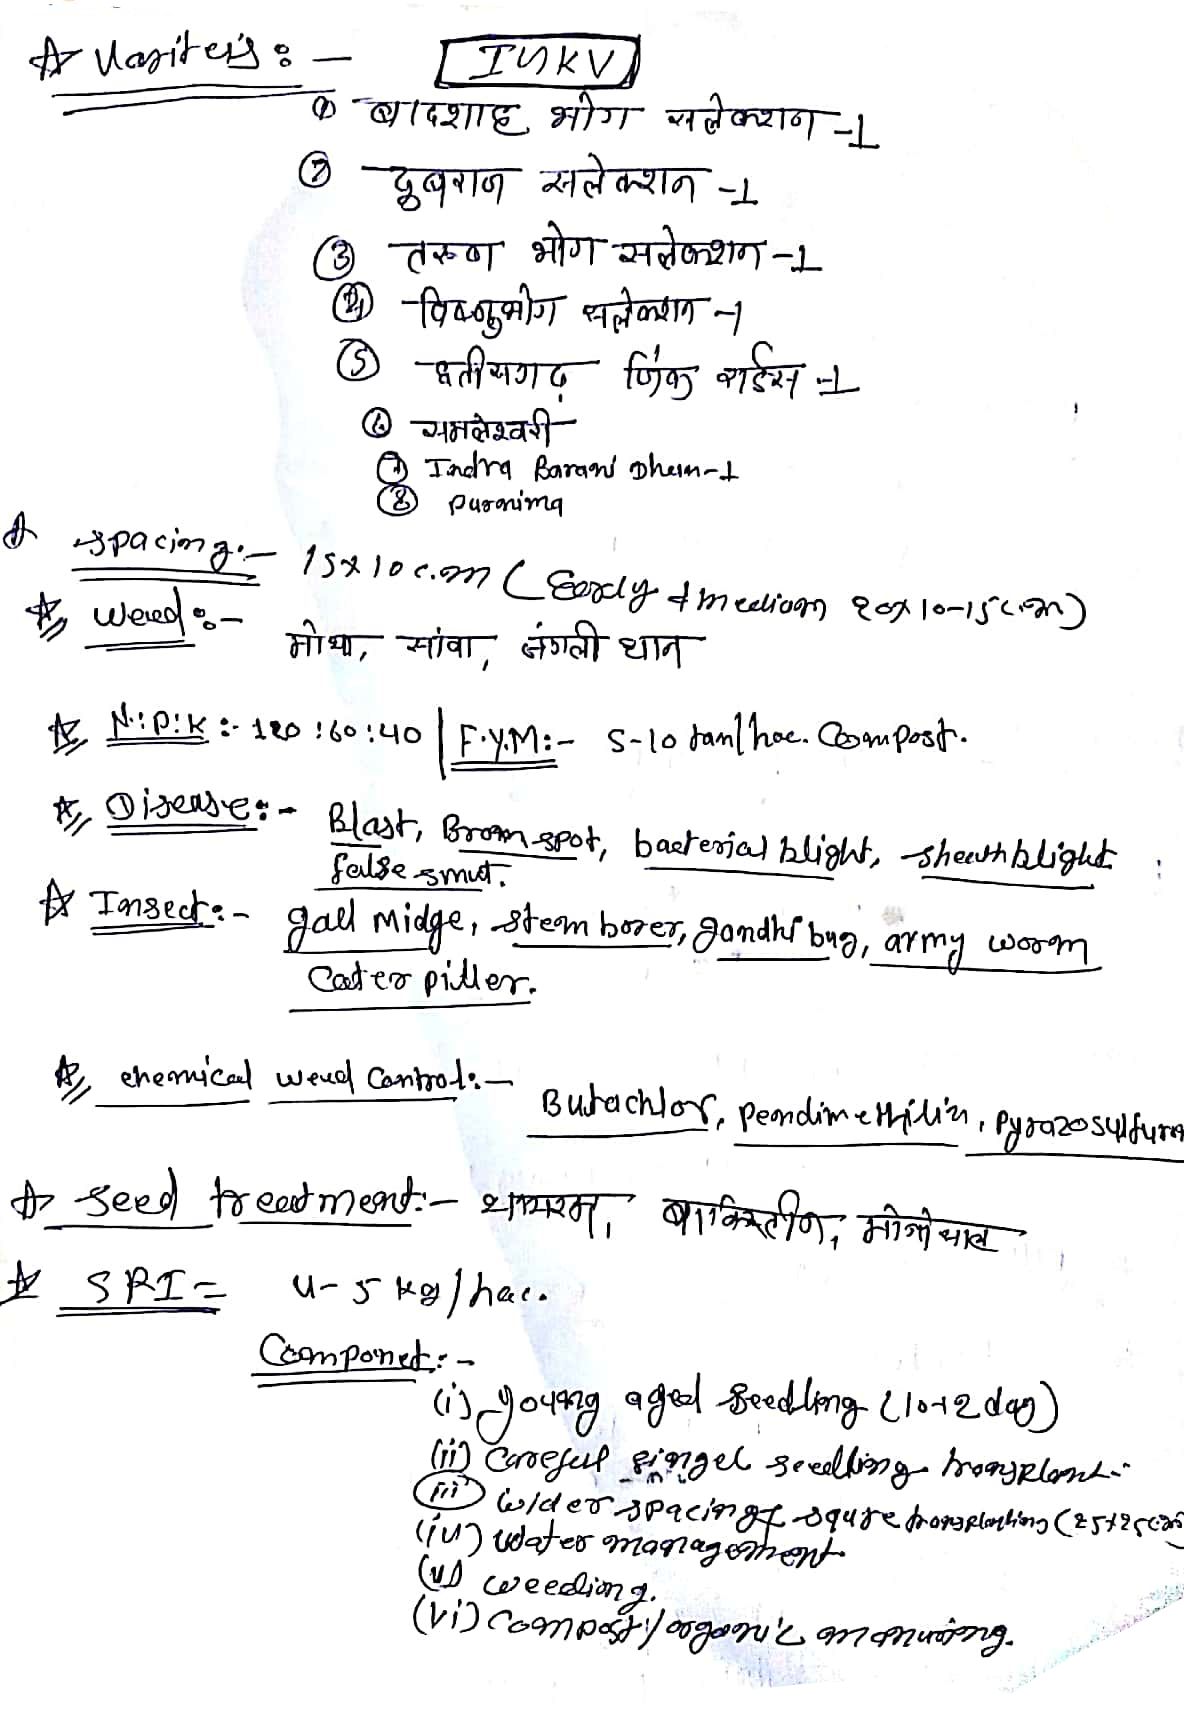 Variteis :- IGKV
① बादशाह भोग सलेक्शन -1
② दुबराज सलेक्शन -1
③ तरुण भोग सलेक्शन -1
④ विष्णुभोग सलेक्शन -1
⑤ छत्तीसगढ़ जिंक राईस -1
⑥ समलेश्वरी
⑦ Indra Barani Dhan-1
⑧ Purnima
Spacing:- 15x10 c.m (Early & medium 20x10-15 c.m)
Weed:- मोथा, सांवा, जंगली धान
N:P:K :- 120:60:40 | F.Y.M:- 5-10 tan/hac. Compost.
Disease:- Blast, Brown spot, bacterial blight, sheath blight
false smut.
Insect:- gall midge, stem borer, gandhi bug, army worm
Cater piller.
chemical weed Control:- Butachlor, Pendimethilin, Pyrazosulfuron
Seed treatment:- थायरम, बाविस्टीन, मोनोधाल
SRI = 4-5 kg/hac.
Componet:-
(i) young aged seedling (10-12 day)
(ii) Careful singel seedling transplant..
(iii) wider spacing & squre transplanting (25x25cm)
(iv) Water management
(v) weeding.
(vi) Compost/organic manuring.